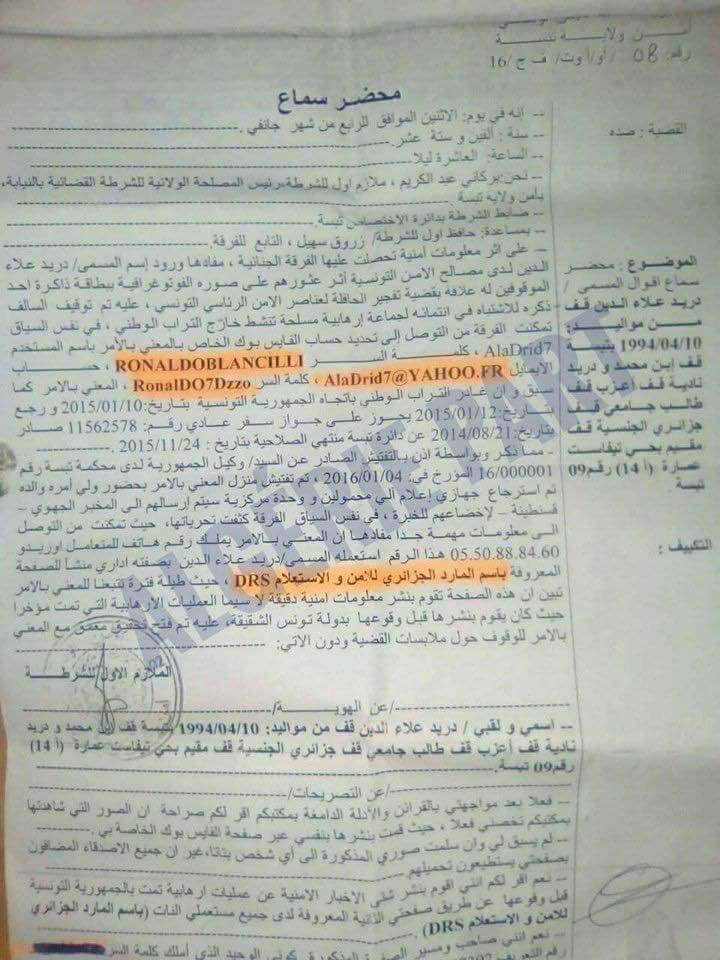 أمن ولاية تبسة
رقم 08 /أو/أ وت/ ف ج /16
محضر سماع
القضية : ضده
-- انه في يوم: الاثنين الموافق للرابع من شهر جانفي.
-- سنة : ألفين و ستة عشر.
-- الساعة: العاشرة ليلا.
-- نحن: بركاني عبد الكريم ، ملازم اول للشرطة، رئيس المصلحة الولائية للشرطة القضائية بالنيابة،
بأمن ولاية تبسة
-- ضابط الشرطة بدائرة الاختصاص تبسة.
-- بمساعدة: حافظ اول للشرطة/ زروق سهيل ، التابع للفرقة.
-- على اثر معلومات أمنية تحصلت عليها الفرقة الجنائية ، مفادها ورود إسم المسمى/ دريد علاء
الدين لدى مصالح الامن التونسية أثر عثورهم على صوره الفوتوغرافية ببطاقة ذاكرة احد
الموقوفين له علاقه بقضية تفجير الحافلة لعناصر الامن الرئاسي التونسي ، عليه تم توقيف السالف
ذكره للاشتباه في انتمائه لجماعة إرهابية مسلحة تنشط خارج التراب الوطني ، في نفس السياق
تمكنت الفرقة من التوصل إلى تحديد حساب الفايس بوك الخاص بالمعني بالأمر باسم المستخدم
AlaDrid7 ، كلمة السر RONALDOBLANCILLI ، حساب
الايمايل AlaDrid7@YAHOO.FR ، كلمة السر RonalDO7Dzzo ، المعني بالامر كما
سبق و ان غادر التراب الوطني باتجاه الجمهورية التونسية بتاريخ: 2015/01/10 و رجع
بتاريخ: 2015/01/12 يحوز على جواز سفر عادي رقم: 11562578 صادر
بتاريخ: 2014/08/21 عن دائرة تبسة منتهي الصلاحية بتاريخ : 2015/11/24 .
-- مما ذكر وبواسطة اذن بالتفتيش الصادر عن السيد/ وكيل الجمهورية لدى محكمة تبسة رقم
16/000001 المؤرخ في: 2016/01/04 ، تم تفتيش منزل المعني بالامر بحضور ولي أمره والده
تم استرجاع جهازي إعلام الي محمولين و وحدة مركزية سيتم إرسالهم الى المخبر الجهوي –
قسنطينة – لإخضاعهم للخبرة ، في نفس السياق الفرقة كثفت تحرياتها، حيث تمكنت من التوصل
الى معلومات مهمة جدا مفادها ان المعني بالامر يملك رقم هاتف للمتعامل اوريدو
05.50.88.84.60 هذا الرقم استعمله المسمى/ دريد علاء الدين بصفته اداري منشأ للصفحة
المعروفة باسم المارد الجزائري للامن و الاستعلام DRS ، حيث طيلة فترة تتبعنا للمعني بالامر
تبين ان هذه الصفحة تقوم بنشر معلومات امنية دقيقة لا سيما العمليات الارهابية التي تمت مؤخرا
حيث كان يقوم بنشرها قبل وقوعها بدولة تونس الشقيقة، عليه تم فتح تحقيق معمق مع المعني
بالامر للوقوف حول ملابسات القضية ودون الاتي:
الموضوع : محضر
سماع اقوال المسمى /
دريد علاء الدين قف
من مواليد:
1994/04/10 بتبسة
قف إبن محمد و دريد
نادية قف أعزب قف
طالب جامعي قف
جزائري الجنسية قف
مقيم بحي تيفاست
عمارة (أ 14) رقم 09
تبسة
التكييف :
الملازم الاول للشرطة
/عن الهوية/
-- اسمي و لقبي / دريد علاء الدين قف من مواليد: 1994/04/10 بتبسة قف إبن محمد و دريد
نادية قف أعزب قف طالب جامعي قف جزائري الجنسية قف مقيم بحي تيفاست عمارة (أ 14)
رقم 09 تبسة.
/عن التصريحات/
-- فعلا بعد مواجهتي بالقرائن والأدلة الدامغة يمكنكم اقر لكم صراحة ان الصور التي شاهدتها
بمكتبكم تخصني فعلا ، حيث قمت بنشرها بنفسي عبر صفحة الفايس بوك الخاصة بي .
-- لم يسبق لي وان سلمت صوري المذكورة الى أي شخص بتاتا، غير ان جميع الاصدقاء المضافون
بصفحتي يستطيعون تحميلهم .
-- نعم اقر لكم انني اقوم بنشر شتى الاخبار الامنية عن عمليات ارهابية تمت بالجمهورية التونسية
قبل وقوعها عن طريق صفحتي الثانية المعروفة لدى جميع مستعملي النات (باسم المارد الجزائري
للامن و الاستعلام DRS)
-- نعم انني صاحب ومسير الصفحة المذكورة، كوني الوحيد الذي أملك كلمة السر
ALGERIE PART